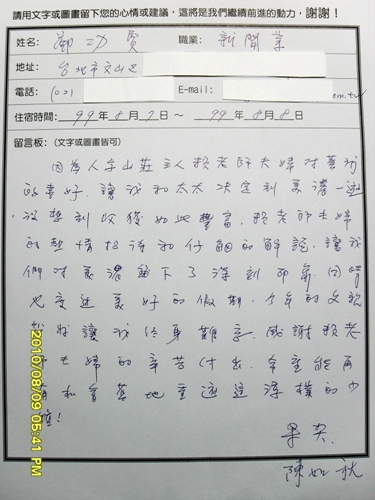 請用文字或圖畫留下您的心情或建議，這將是我們繼續前進的動力，謝謝！
姓名： 鄭功賢 職業： 新聞業
地址： 台北市文山區
電話： (02) E-mail: om.tw
住宿時間： 99年8月7日~ 99年8月8日
留言板：(文字或圖畫皆可)
因為人字山莊主人賴老師夫婦對美術
的喜好，讓我和太太決定到美濃一遊
沒想到收穫如此豐富，賴老師夫婦
的熱情招待和仔細的解說，讓我
們對美濃留下了深刻印象，同時
也度過美好的假期，今年的父親
節將讓我終身難忘。感謝賴老
師夫婦的辛苦付出，希望能再
有機會舊地重遊這淳樸的
啦！
果英
陳如秋
2010/08/09 05:41 PM